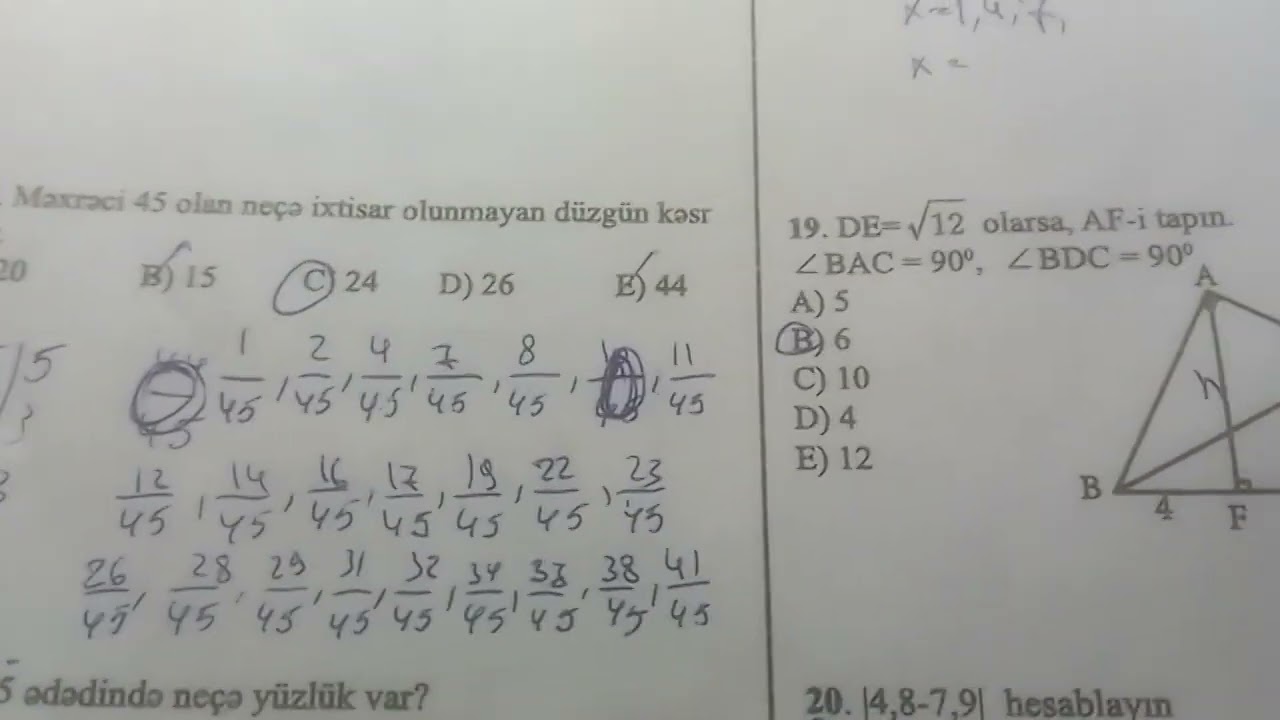 x=1,4,7,
x =
Məxrəci 45 olan neçə ixtisar olunmayan düzgün kəsr
20 B) 15 C) 24 D) 26 E) 44
5
1/45, 2/45, 4/45, 7/45, 8/45, 11/45
12/45, 14/45, 16/45, 17/45, 19/45, 22/45, 23/45
26/45, 28/45, 29/45, 31/45, 32/45, 34/45, 37/45, 38/45, 41/45
5 ədədində neçə yüzlük var?
19. DE=√12 olarsa, AF-i tapın.
∠BAC = 90⁰, ∠BDC = 90⁰
A) 5
B) 6
C) 10
D) 4
E) 12
A
h
B
4
F
20. |4,8-7,9| hesablayın